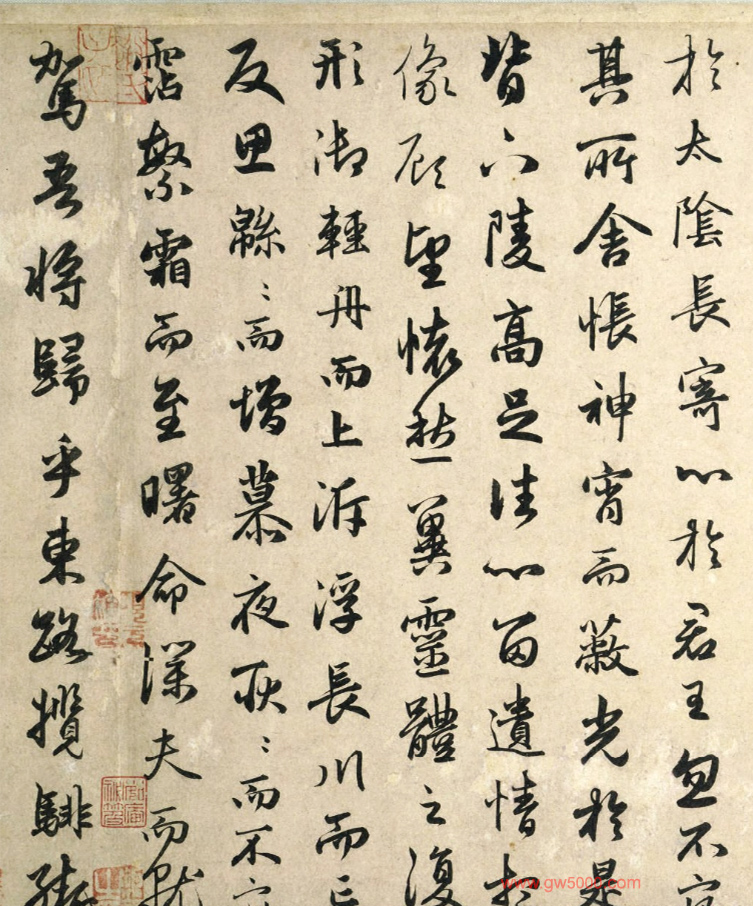 於太陰長寄心於君王忽不
其所舍悵神宵而蔽光於是
背下陵高足往心留遺情想
像顧望懷愁冀靈體之復
形御輕舟而上泝浮長川而忘
反思緜〻而增慕夜耿〻而不
霑繁霜而至曙命僕夫而就
駕吾將歸乎東路攬騑轡
www.gw5000.com